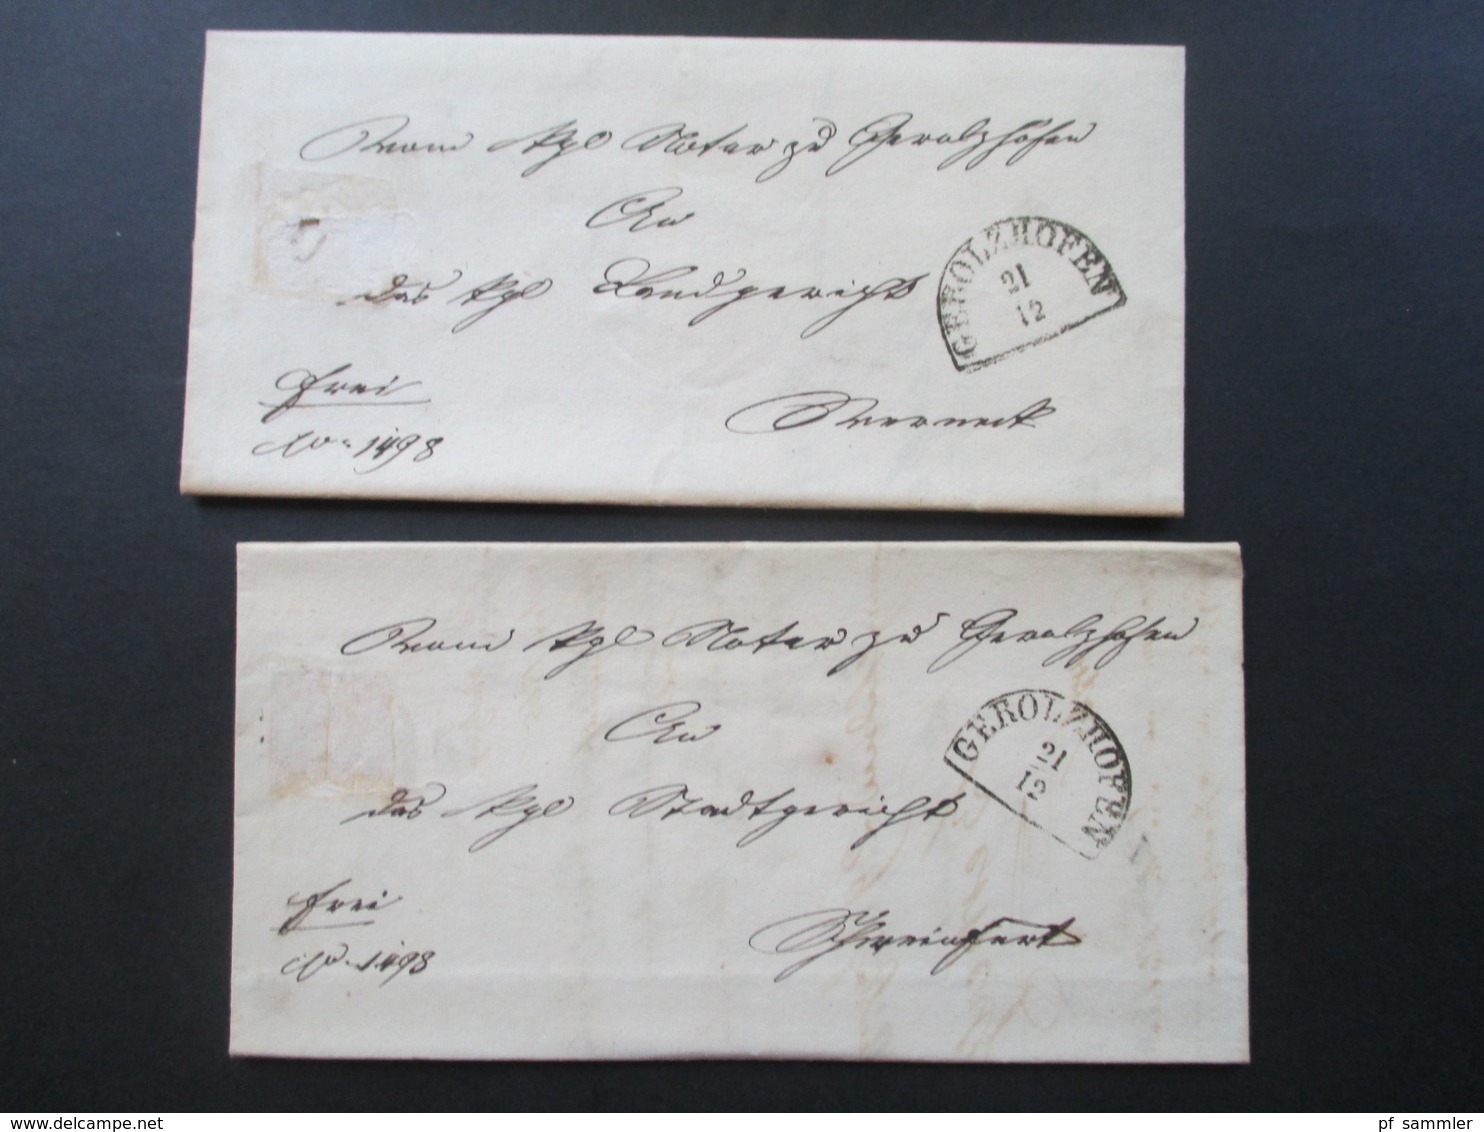 Vom kgl Notar zu Gerolzhofen
An
das kgl Landgericht
GEROLZHOFEN
21
12
frei
No 1498
Werneck
Vom kgl Notar zu Gerolzhofen
An
das kgl Stadtgericht
GEROLZHOFEN
21
12
frei
No 1498
Schweinfurt
www.delcampe.net
pf_sammler